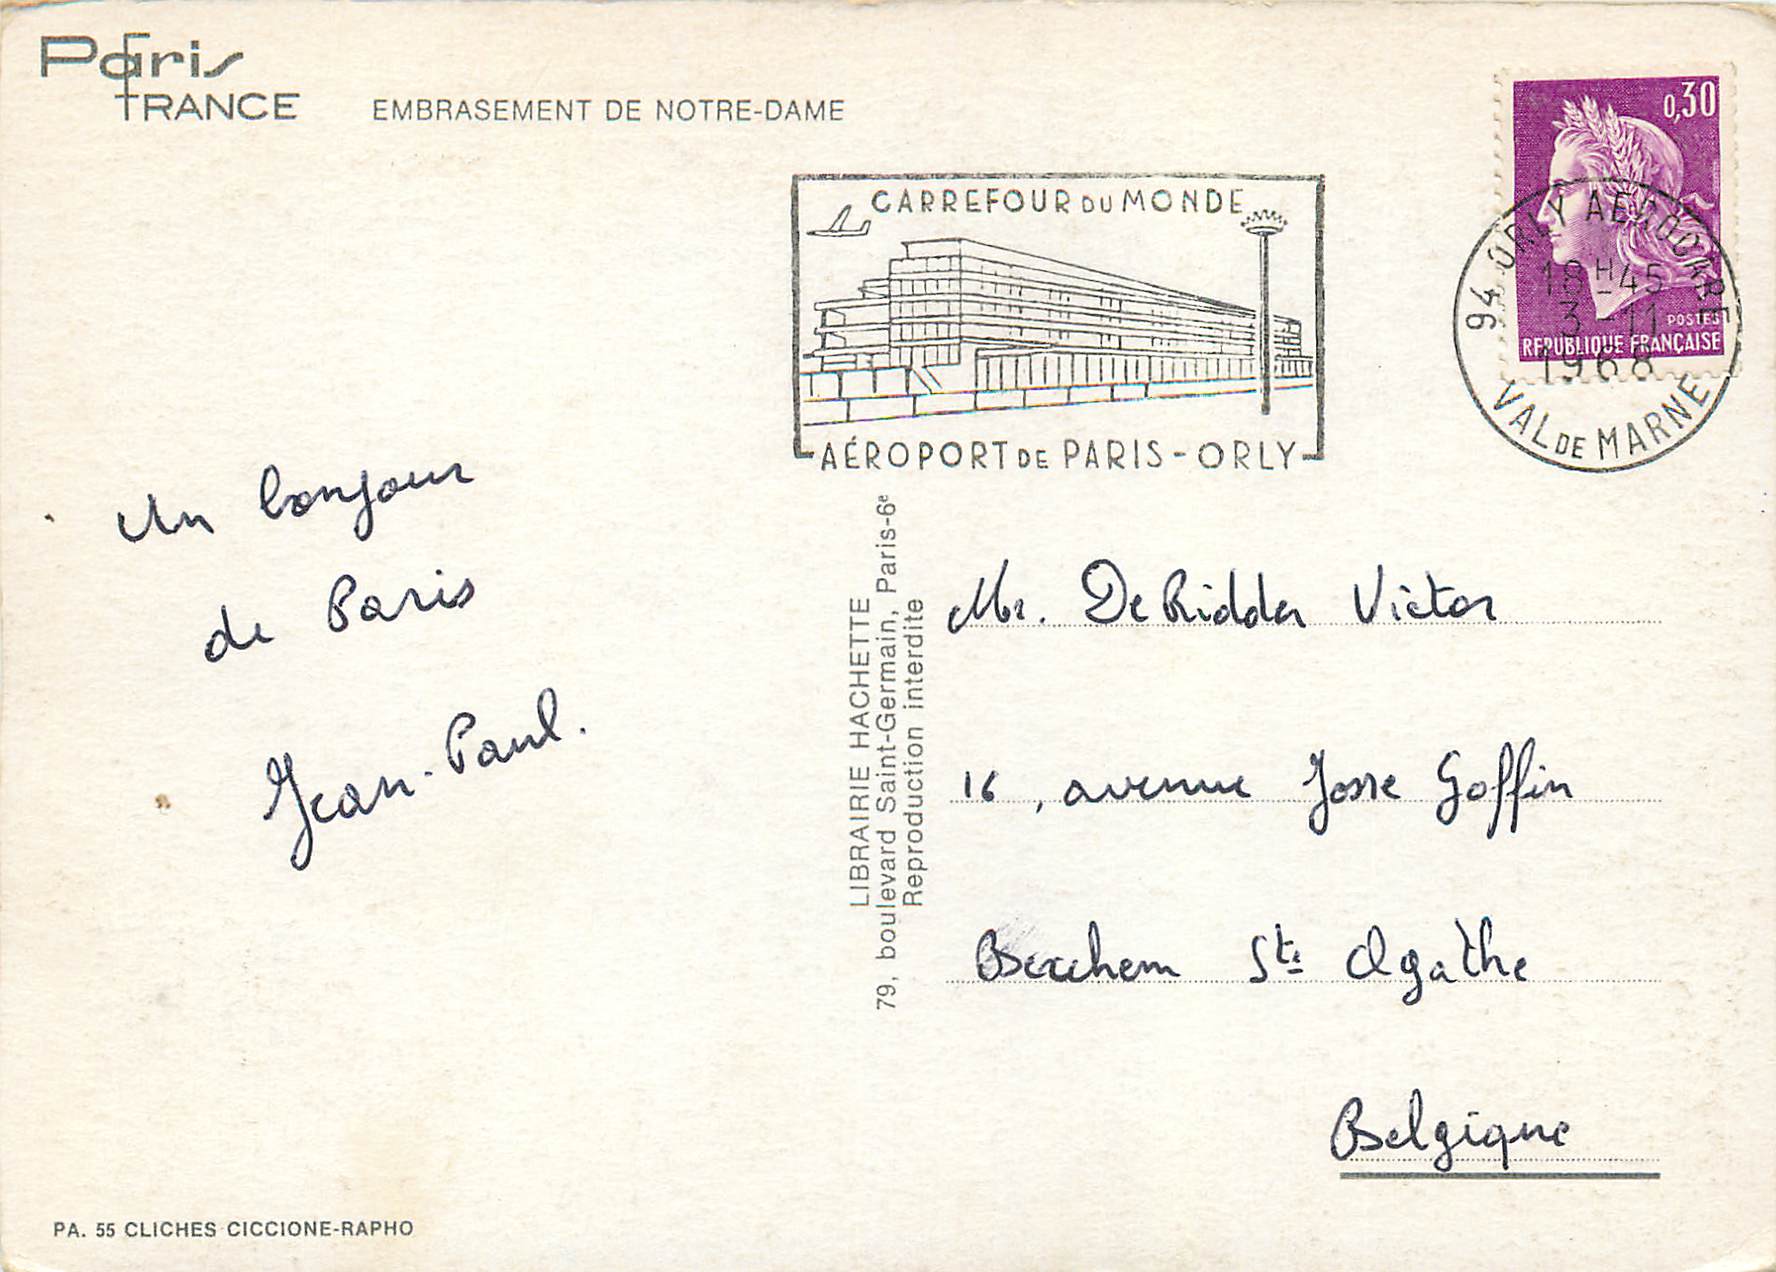 Paris
FRANCE
EMBRASEMENT DE NOTRE-DAME
CARREFOUR DU MONDE
AÉROPORT DE PARIS - ORLY
0,30
POSTES
REPUBLIQUE FRANÇAISE
94 ORLY AÉROGARE
18H45
3-11
1968
VAL DE MARNE
Un bonjour
de Paris
Jean-Paul.
LIBRAIRIE HACHETTE
79, boulevard Saint-Germain, Paris-6e
Reproduction interdite
Mr. De Ridder Victor
16, avenue Josse Goffin
Berchem Ste Agathe
Belgique
PA. 55 CLICHES CICCIONE-RAPHO